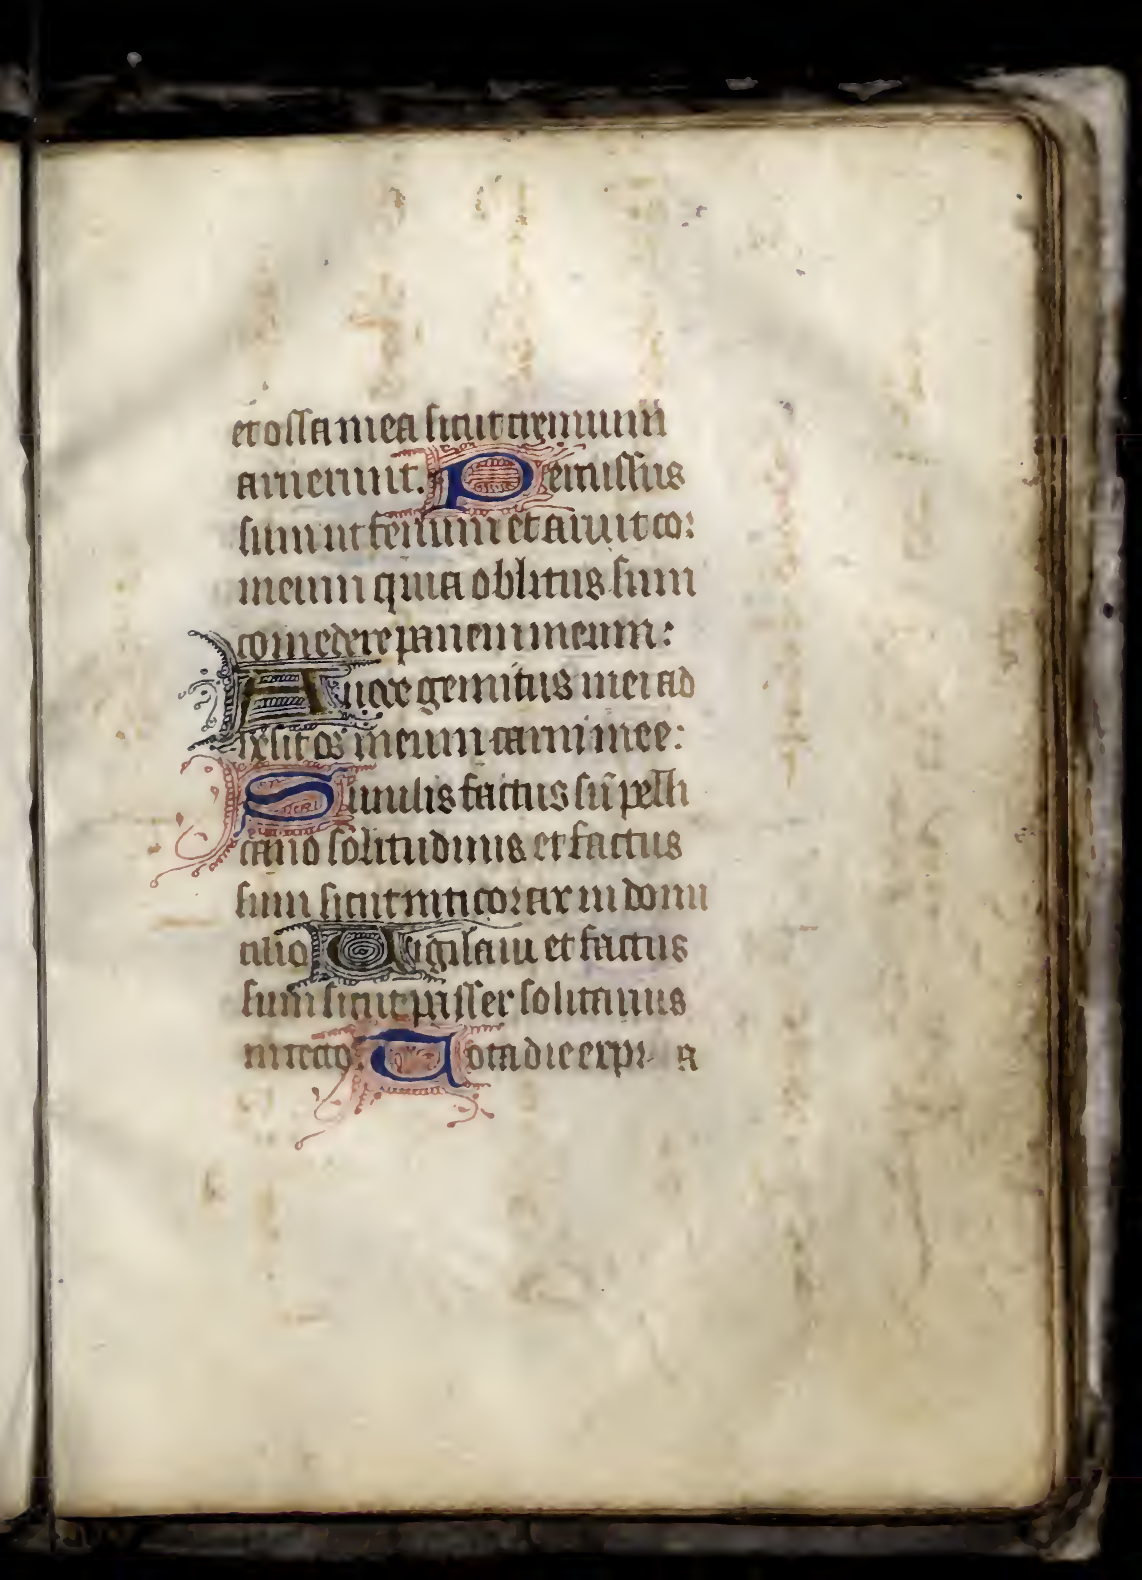 et ossa mea sicut cremium
aruerunt. Percussus
sum ut fenum et aruit cor
meum quia oblitus sum
comedere panem meum:
A uoce gemitus mei ad
hesit os meum carni mee:
Similis factus sū pelli
cano solitudinis et factus
sum sicut nicticorax in domi
cilio Vigilaui et factus
sum sicut passer solitarius
in tecto. Tota die